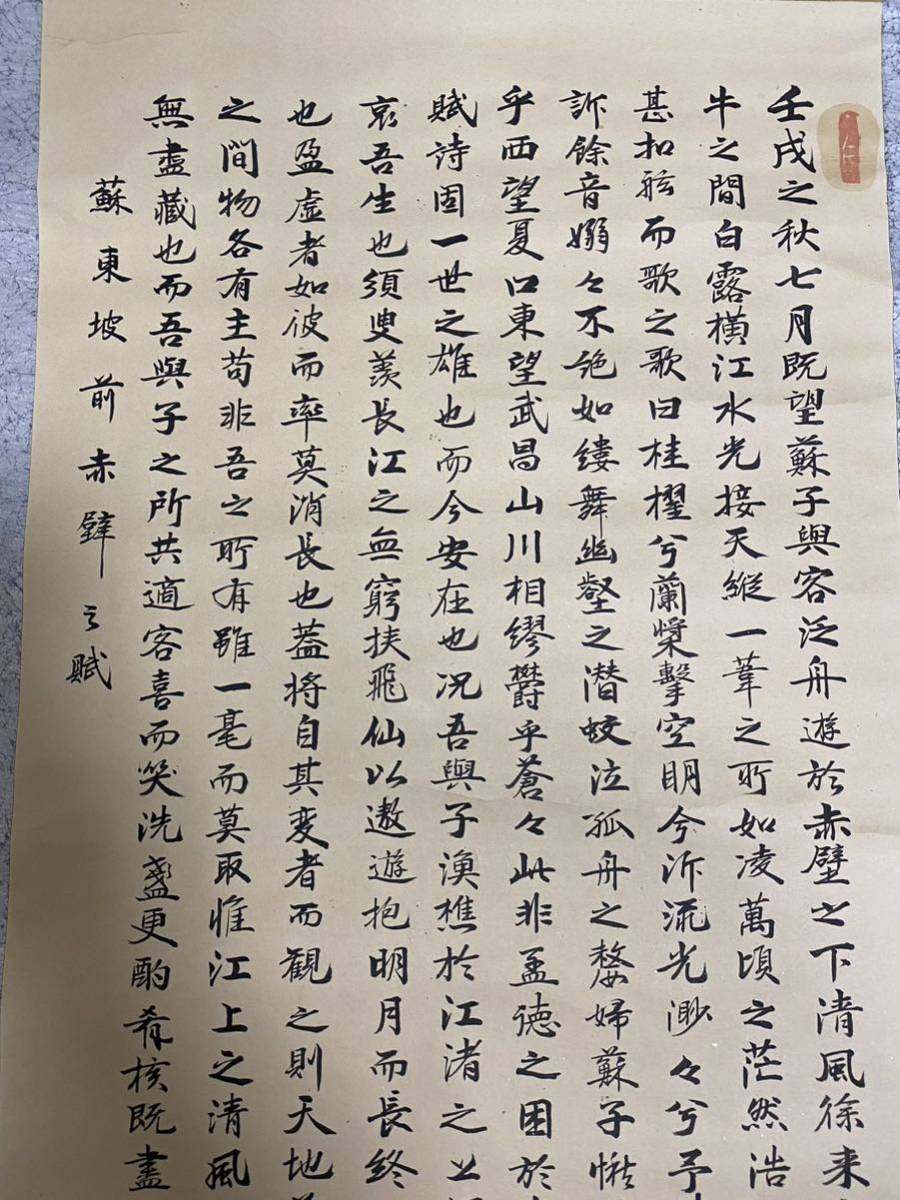 壬戌之秋七月既望蘇子與客泛舟遊於赤壁之下清風徐来
牛之間白露橫江水光接天縱一葦之所如凌萬頃之茫然浩
甚扣舷而歌之歌曰桂櫂兮蘭槳擊空明兮泝流光渺々兮予
訴餘音嫋々不絶如縷舞幽壑之潜蛟泣孤舟之嫠婦蘇子愀
乎西望夏口東望武昌山川相繆欝乎蒼々此非孟德之困於
賦詩固一世之雄也而今安在也况吾與子漁樵於江渚之上
哀吾生也須臾羨長江之無窮挟飛仙以遨遊抱明月而長終
也盈虚者如彼而率莫消長也蓋将自其変者而観之則天地
之間物各有主苟非吾之所有雖一毫而莫取惟江上之清風
無盡藏也而吾與子之所共適客喜而笑洗盞更酌肴核既盡
蘇東坡前赤壁之賦